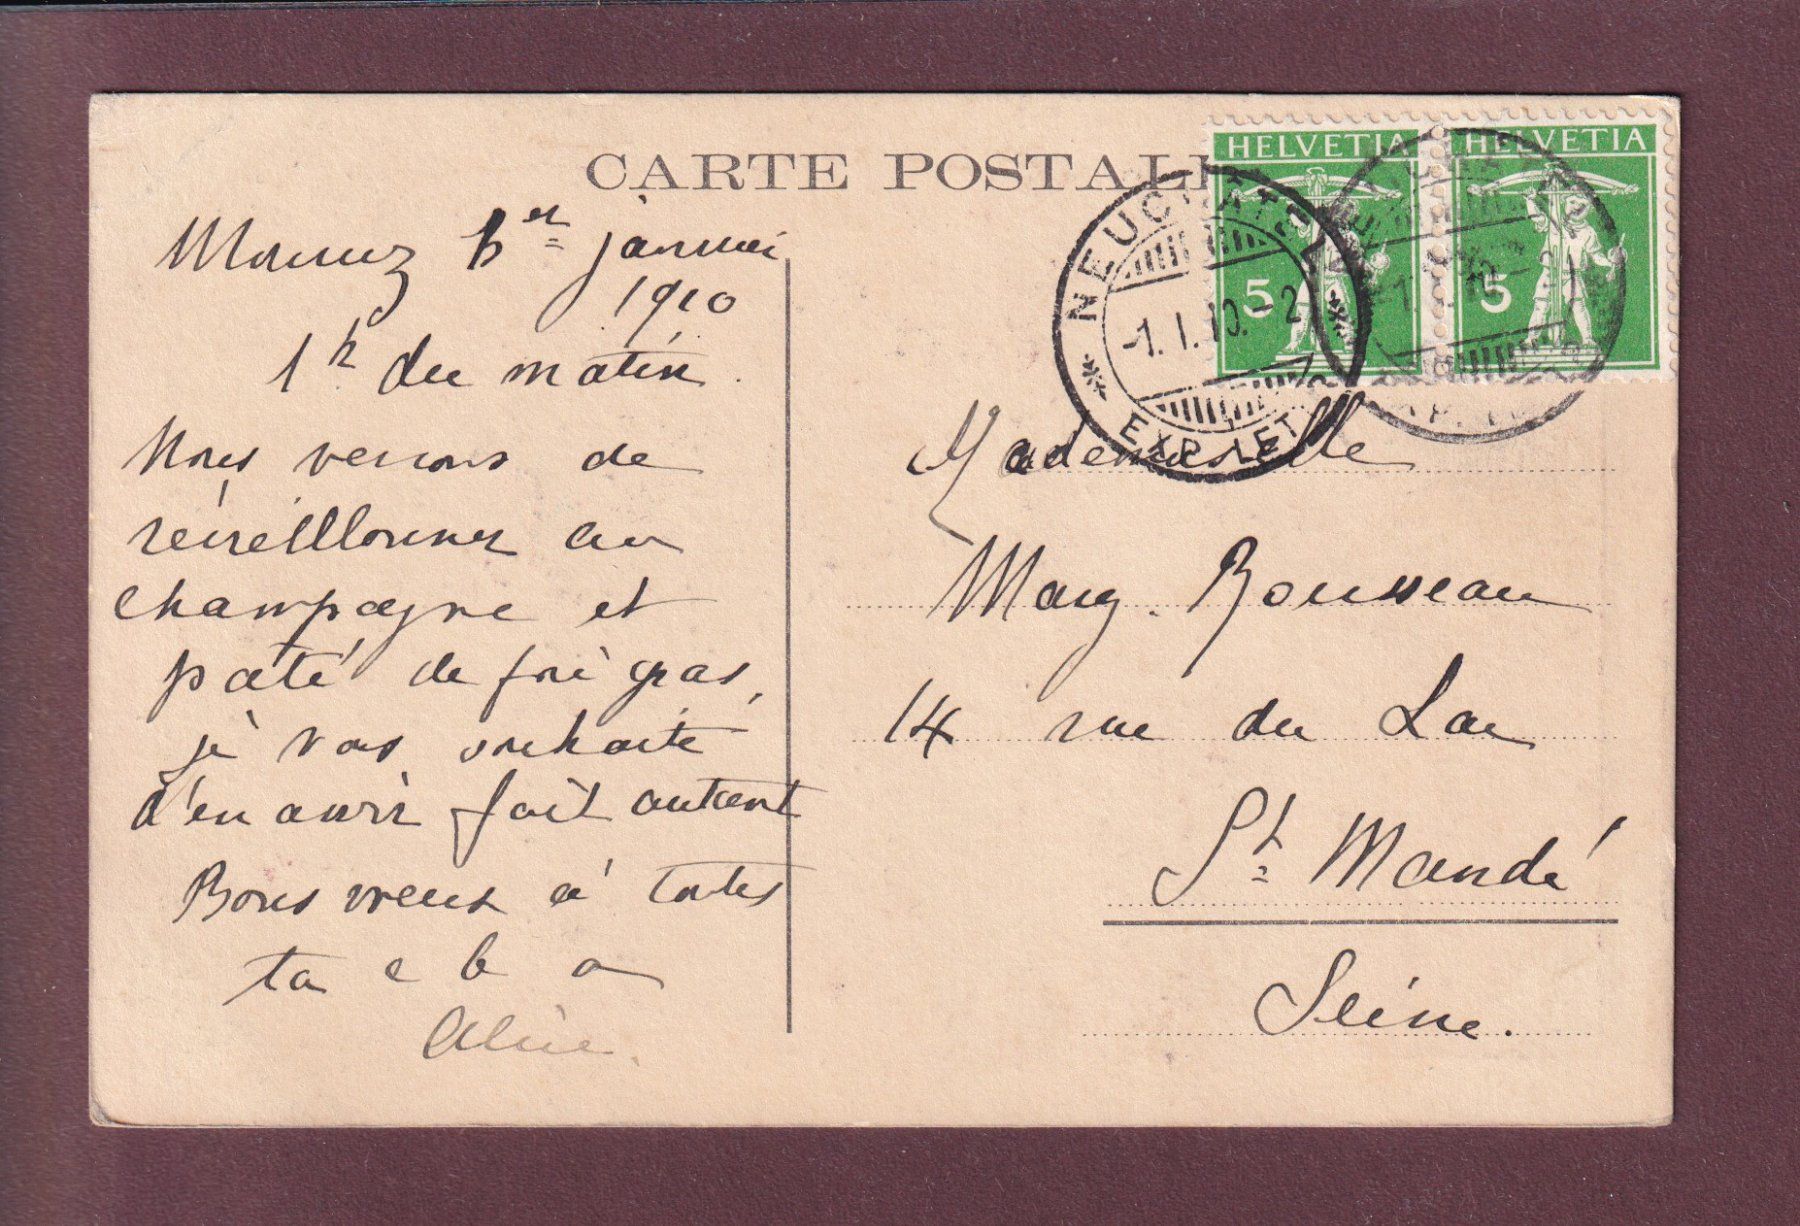 CARTE POSTALE
HELVETIA HELVETIA
5 5
NEUCHATEL
-1. I. 10. - 2
EXP. LET.
Monruz 1er janvier
1910
1h du matin.
Nous venons de
réveillonner au
champagne et
pâté de foie gras,
je vous souhaite
d'en avoir fait autant
Bons vœux à toutes
ta
Alice.
Mademoiselle
Marg. Rousseau
14 rue du Lac
St Mandé
Seine.